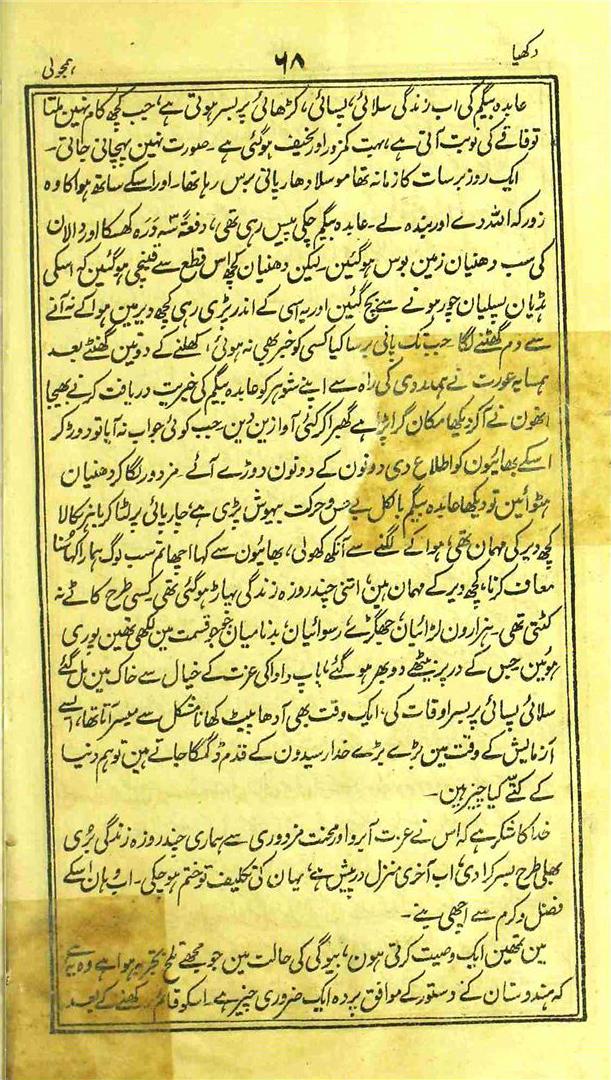 دکھیا ۶۸ ہمجولی
عابدہ بیگم کی اب زندگی سلائی، پسائی، کڑھائی پر بسر ہوتی ہے، جب کچھ کام نہین ملتا
تو فاقے کی نوبت آتی ہے، بہت کمزور اور نحیف ہو گئی ہے۔ صورت نہین پہچانی جاتی۔
ایک روز برسات کا زمانہ تھا موسلا دھار پانی برس رہا تھا۔ اور اسکے ساتھ ہوا کا وہ
زور کہ اللہ دے اور بندہ لے۔ عابدہ بیگم چکی پیس رہی تھی، دفعۃً سہ درہ کھسکا اور دالان
کی سب دھنیان زمین بوس ہو گئین۔ لیکن دھنیان کچھ اس قطع سے قینچی ہو گئین کہ اسکی
ہڈیان پسلیان چور ہونے سے بچ گئین اور یہ اسی کے اندر پڑی رہی کچھ دیر مین ہوا کے نہ آنے
سے دم گھٹنے لگا جب تک پانی برسا کیا کسی کو خبر بھی نہ ہوئی، کھلنے کے دو تین گھنٹے بعد
ہمسایہ عورت نے ہمدردی کی راہ سے اپنے شوہر کو عابدہ بیگم کی خیریت دریافت کرنے بھیجا
انھون نے آ کر دیکھا مکان گرا پڑا ہے گھبرا کر کئی آوازین دین۔ جب کوئی جواب نہ آیا تو دوڑ کر
اسکے بھائیون کو اطلاع دی دونون کے دونون دوڑے آئے۔ مزدور لگا کر دھنیان
ہٹوائین تو دیکھا عابدہ بیگم بالکل بے حس و حرکت بیہوش پڑی ہے، چارپائی پر لٹا کر باہر نکالا
کچھ دیر کی مہمان تھی، ہوا کے لگنے سے آنکھ کھولی، بھائیون سے کہا اچھا تم سب لوگ ہمارا کہا سنا
معاف کرنا، کچھ دیر کے مہمان ہین، اتنی چند روزہ زندگی پہاڑ ہو گئی تھی کسی طرح کاٹے نہ
کٹتی تھی۔ ہزارون لڑائیان، جھگڑے، رسوائیان، بدنامیان جو جو قسمت مین لکھی تھین پوری
ہوئین جس کے در پر بیٹھے دوبھر ہو گئے، باپ دادا کی عزت کے خیال سے خاک مین مل گئے
سلائی پسائی پر بسر اوقات کی، ایک وقت بھی آدھا پیٹ کھانا مشکل سے میسر آتا تھا، ایسے
آزمایش کے وقت مین بڑے بڑے خدا رسیدون کے قدم ڈگمگا جاتے ہین تو ہم دنیا
کے کتے کیا چیز ہین۔
خدا کا شکر ہے کہ اس نے عزت آبرو اور محنت مزدوری سے ہماری چند روزہ زندگی بُری
بھلی طرح بسر کرا دی، اب آخری منزل درپیش ہے، یہان کی تکلیف تو ختم ہو چکی۔ اب وہان اسکے
فضل و کرم سے اچھی بنے۔
مین تمھین ایک وصیت کرتی ہون، بیوگی کی حالت مین جو مجھے تلخ تجربہ ہوا ہے وہ یہ ہے
کہ ہندوستان کے دستور کے موافق پردہ ایک ضروری چیز ہے۔ اسکو قائم رکھنے کے بعد